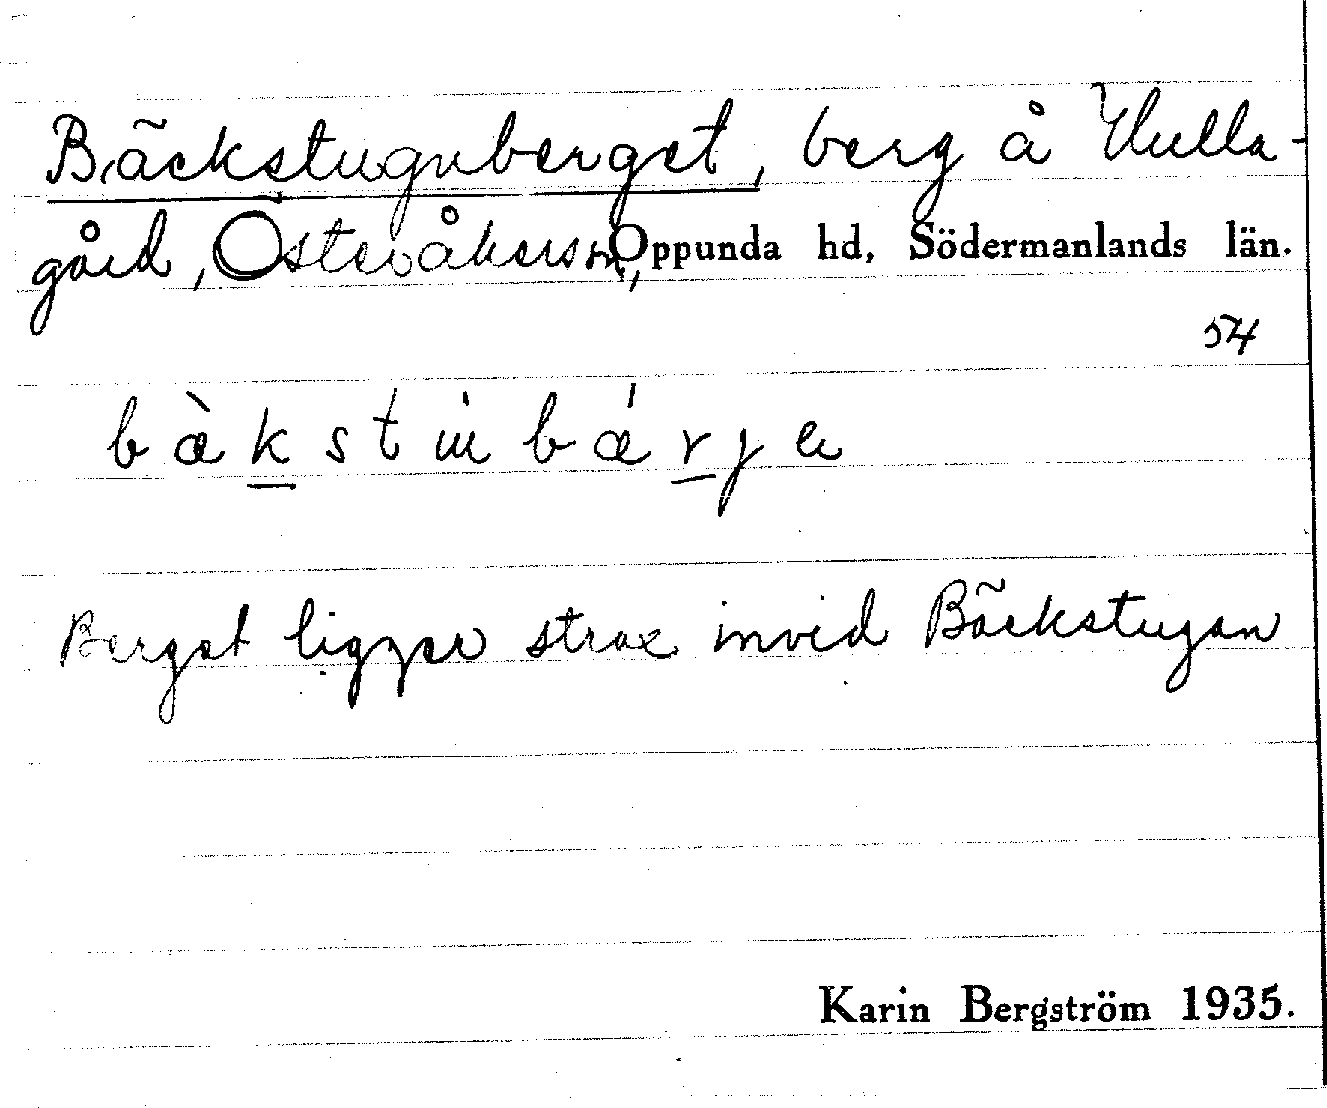 Bäckstuguberget, berg å Hulla-
gård, Österåkers sn, Oppunda hd, Södermanlands län.
54
bæ̀kstùbǽrjɘ
Berget ligger strax invid Bäckstugan
Karin Bergström 1935.